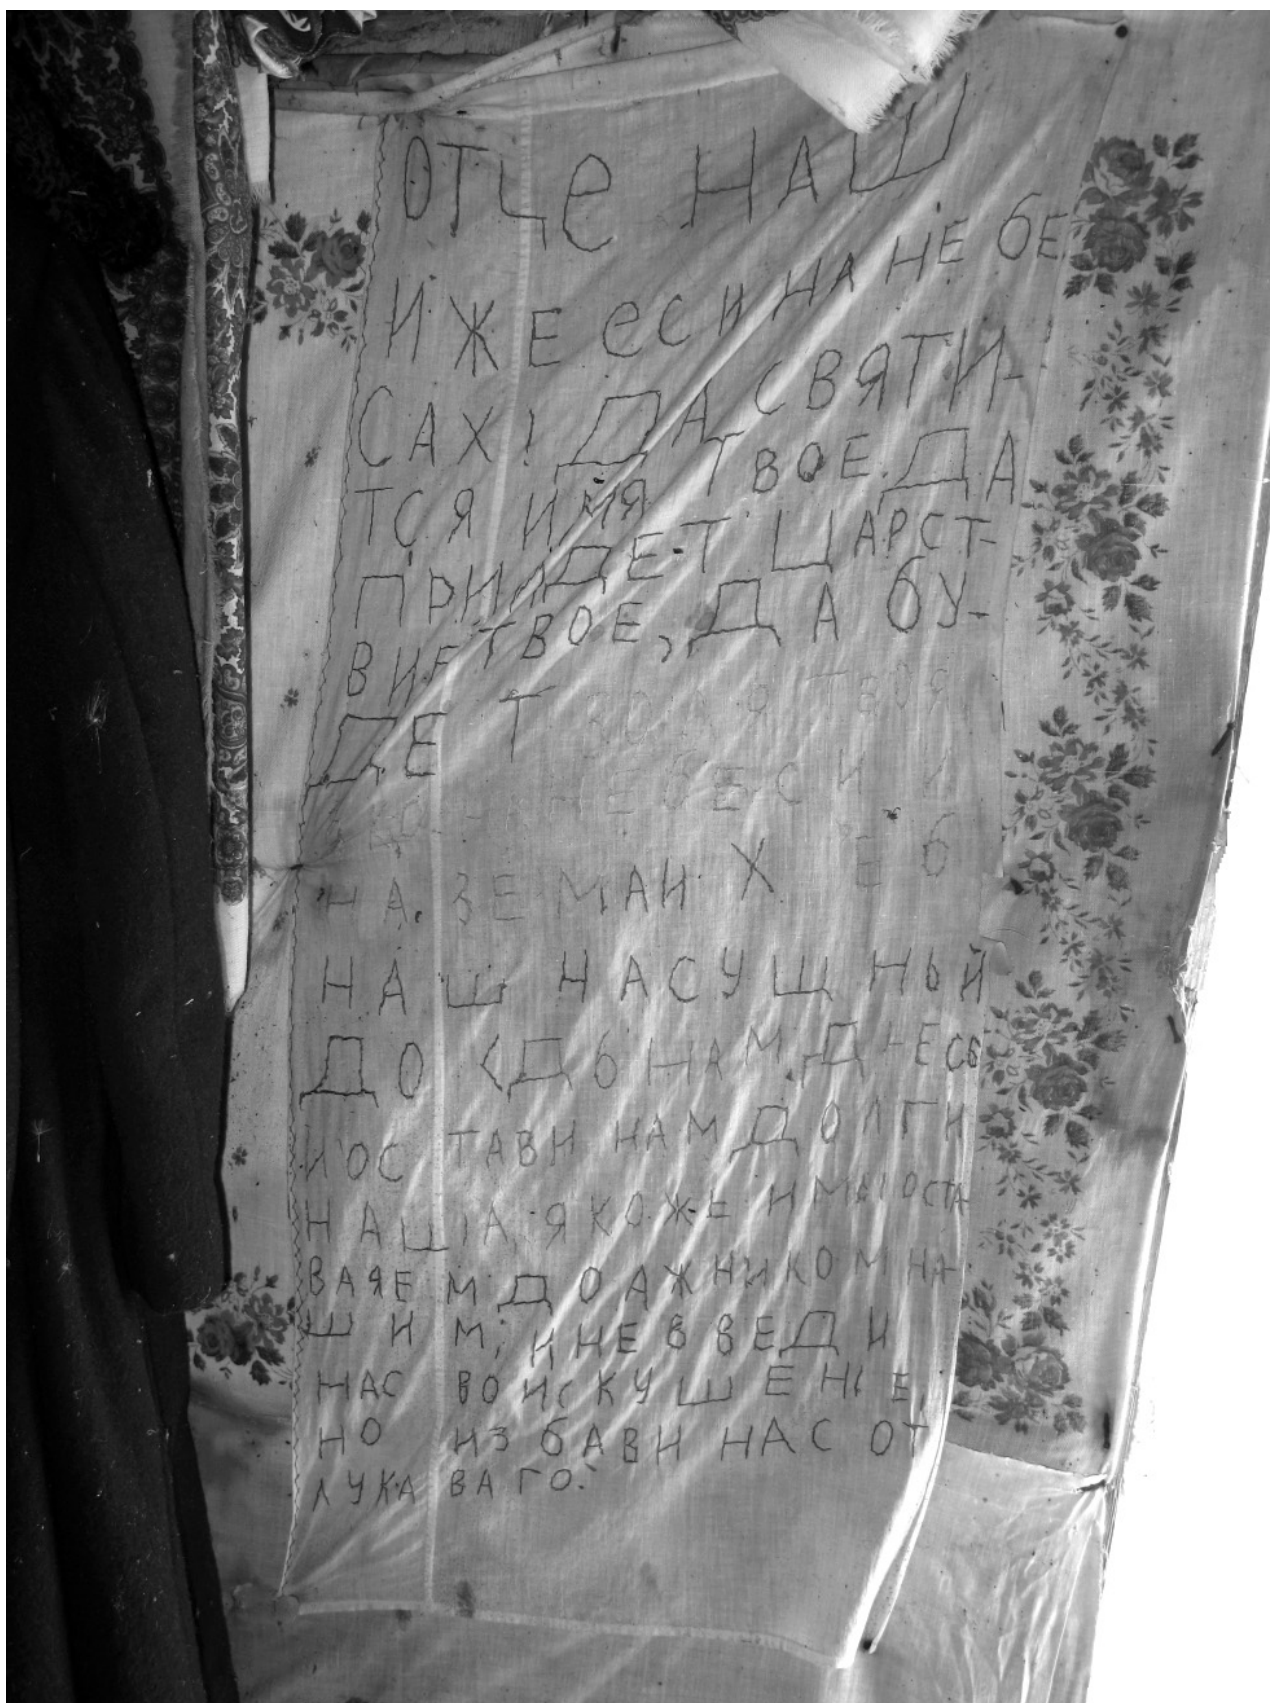 ОТЦе НАШ
ИЖЕ еСИ НА НЕбЕ
САХ! ДА СВЯТИ-
ТСЯ ИМЯ ТВОЕ. ДА
ПРИИДЕТ ЦАРСТ-
ВИЕ ТВОЕ, ДА бУ-
ДЕТ ВОЛЯ ТВОЯ
НЕБЕСИ И
НА ЗЕМАИ Х Е б
НАШ НАСУЩНЬЙ
ДО <ДЬ НАМ ДНЕСЬ
И ОСТАВИ НАМ ДОЛГИ
НАША ЯКОЖЕ И МЫ ОСТА
ВАЯЕМ ДОАЖНИКОМ НА-
ШИМ, И НЕ ВВЕДИ
НАС ВО ИСКУШЕНЬЕ
НО ИЗбАВИ НАС ОТ
ЛУКАВАГО.